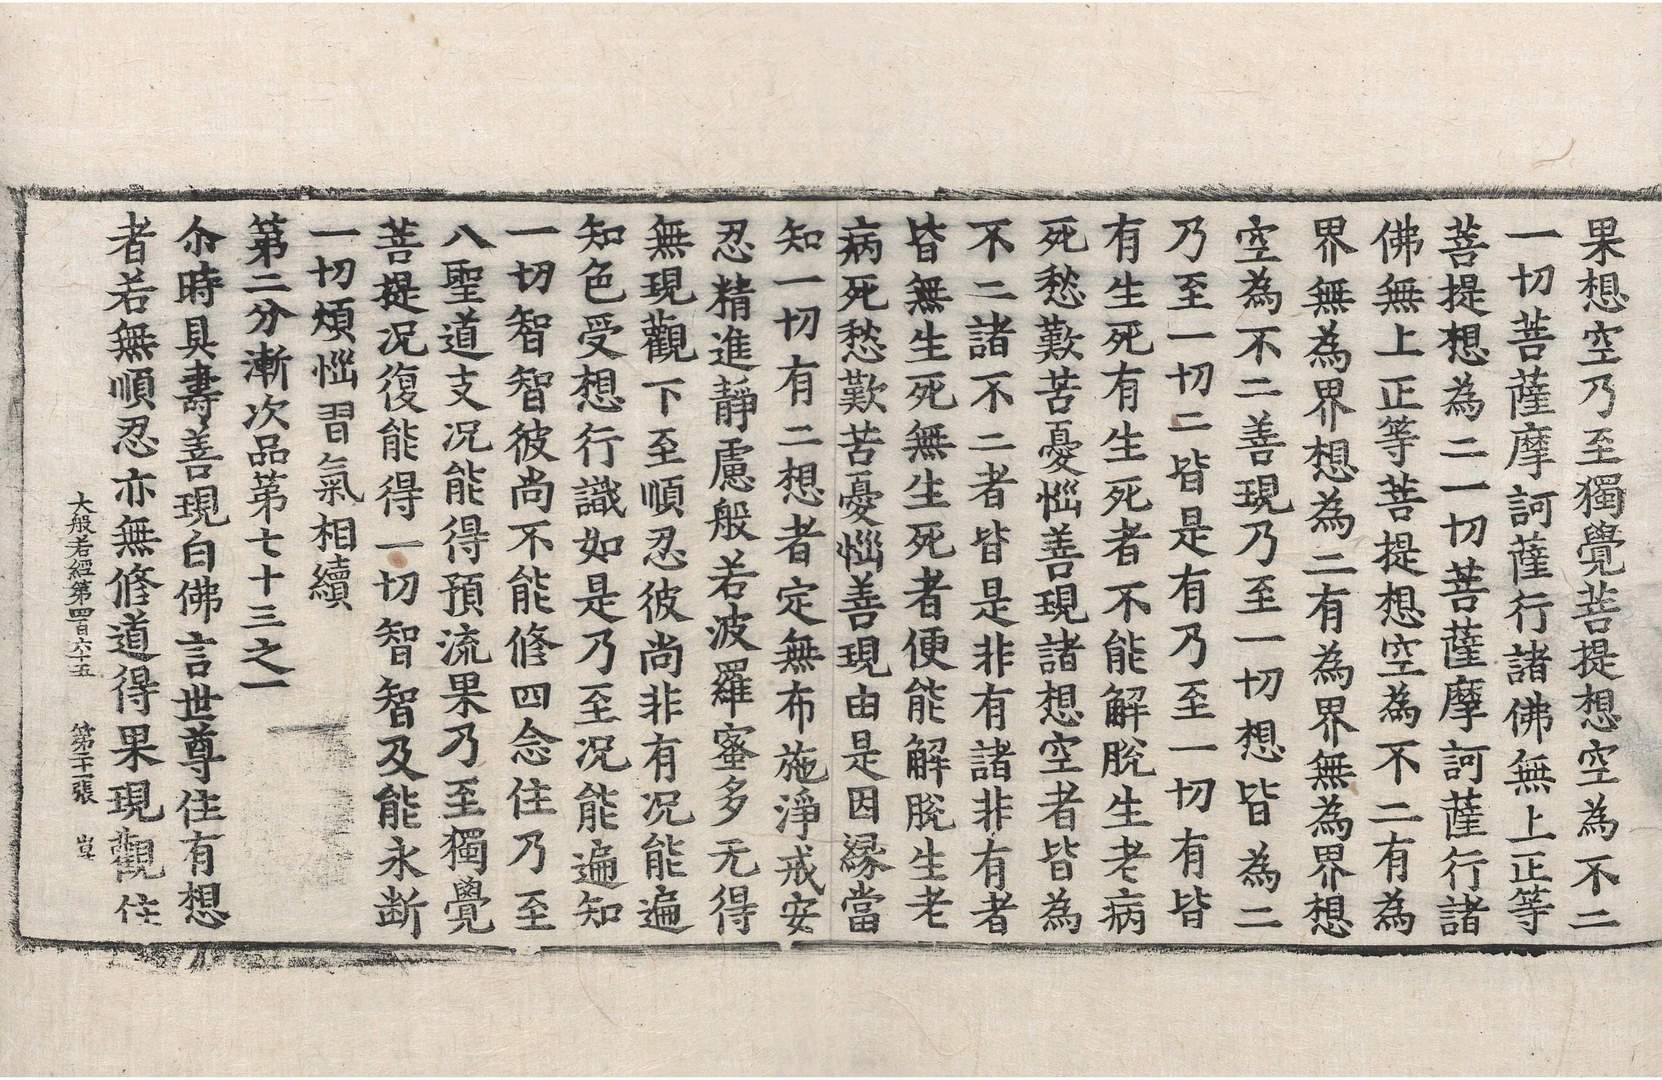 果想空乃至獨覺菩提想空為不二
一切菩薩摩訶薩行諸佛無上正等
菩提想為二一切菩薩摩訶薩行諸
佛無上正等菩提想空為不二有為
界無為界想為二有為界無為界想
空為不二善現乃至一切想皆為二
乃至一切二皆是有乃至一切有皆
有生死有生死者不能解脫生老病
死愁歎苦憂惱善現諸想空者皆為
不二諸不二者皆是非有諸非有者
皆無生死無生死者便能解脫生老
病死愁歎苦憂惱善現由是因緣當
知一切有二想者定無布施淨戒安
忍精進靜慮般若波羅蜜多无得
無現觀下至順忍彼尚非有况能遍
知色受想行識如是乃至况能遍知
一切智智彼尚不能修四念住乃至
八聖道支况能得預流果乃至獨覺
菩提况復能得一切智智及能永斷
一切煩惱習氣相續
第二分漸次品第七十三之一
尒時具壽善現白佛言世尊住有想
者若無順忍亦無修道得果現觀住
大般若經第四百六十五 第二十一張